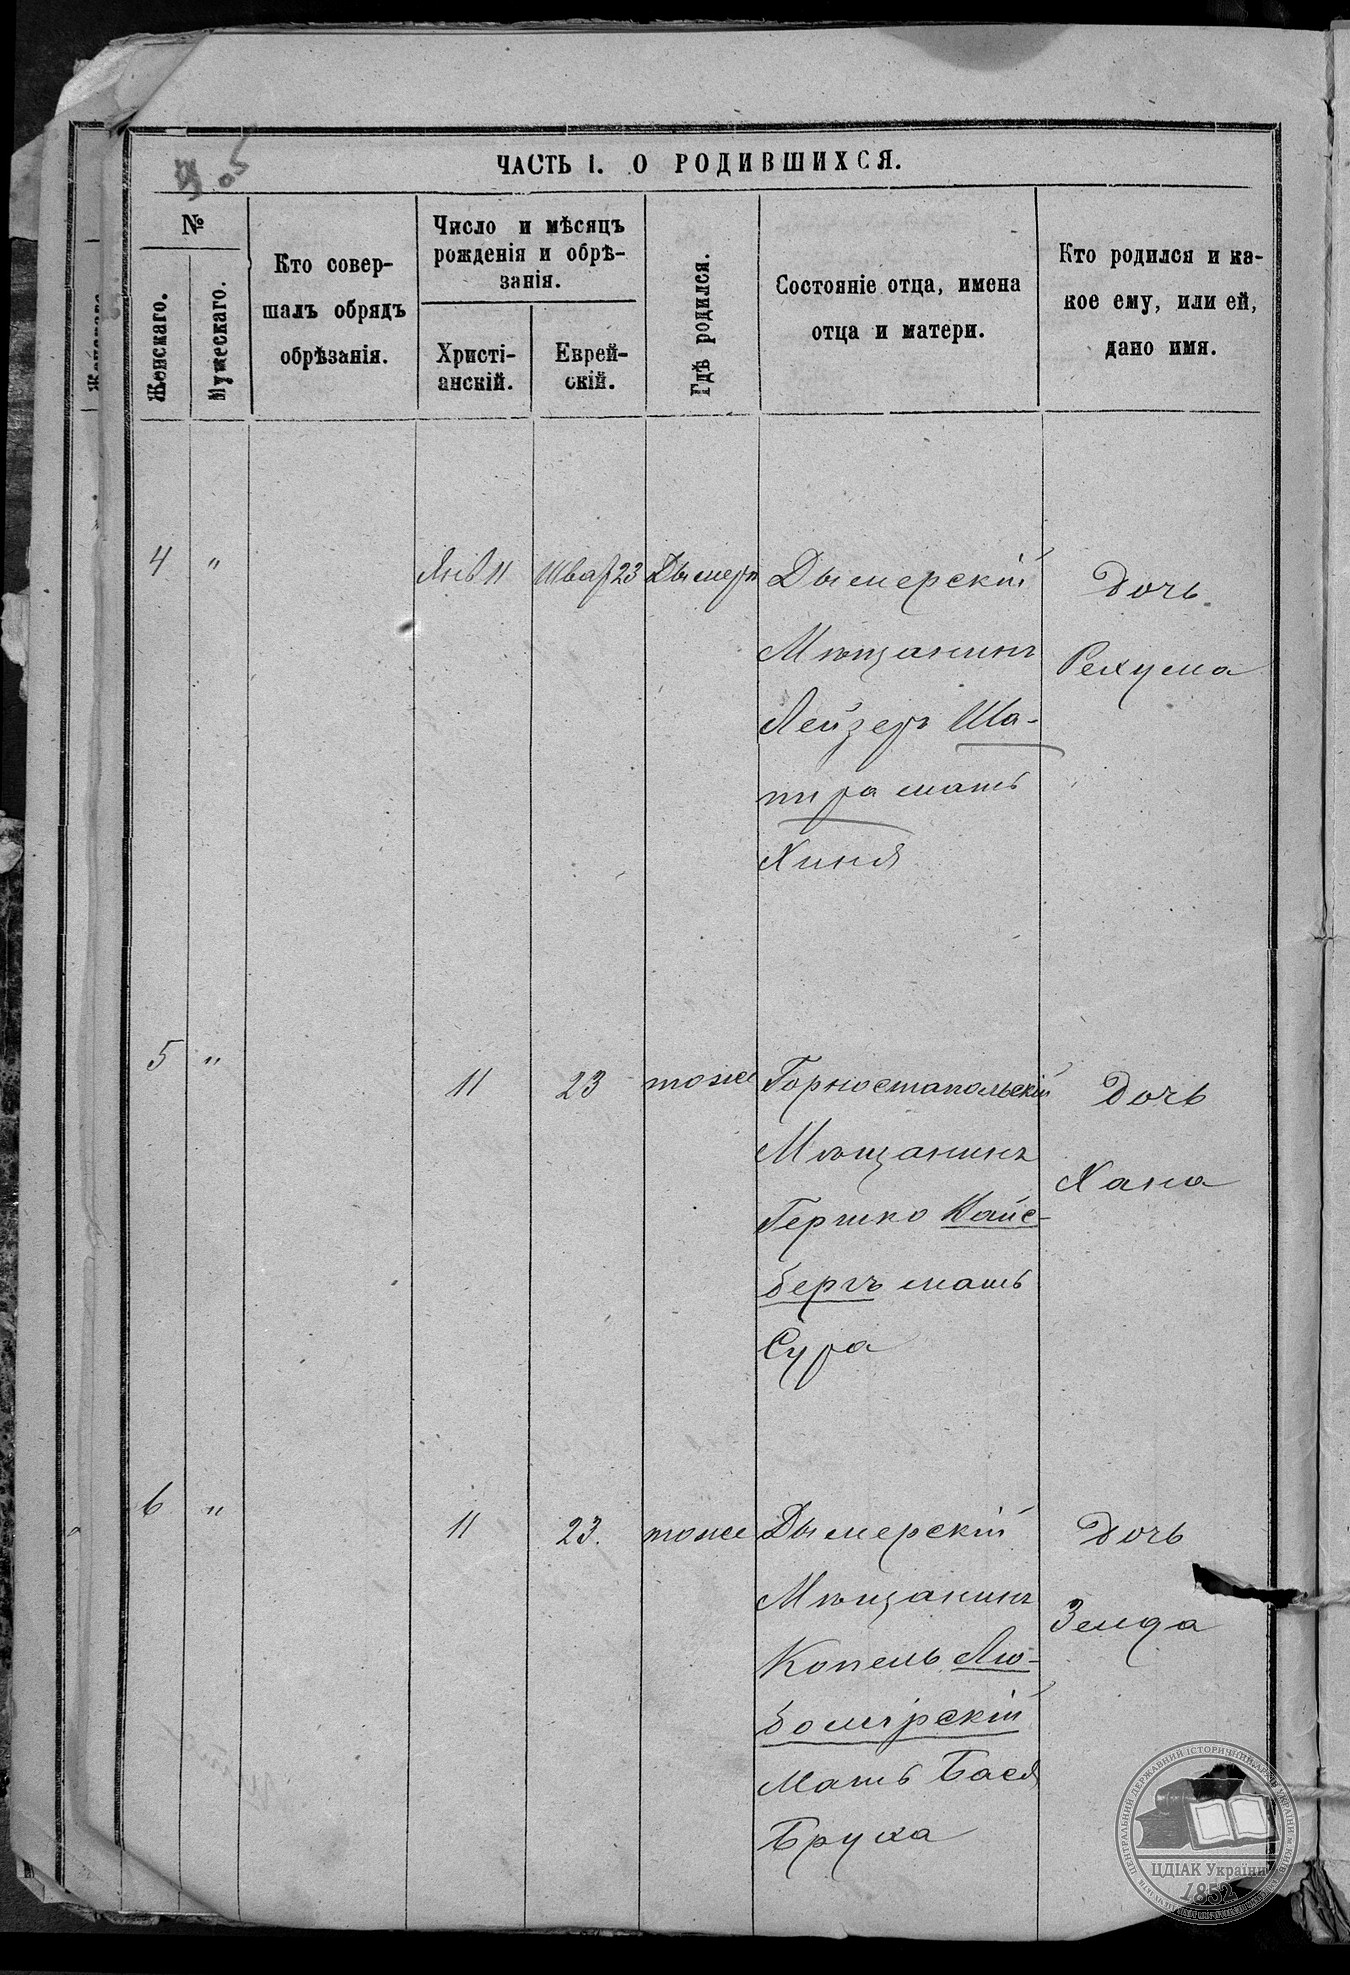 ЧАСТЬ I. О РОДИВШИХСЯ.
№
Женскаго.
Мужескаго.
Кто совер-
шалъ обрядъ
обрѣзанія.
Число и мѣсяцъ
рожденія и обрѣ-
занія.
Христі-
анскій.
Еврей-
скій.
Гдѣ родился.
Состояніе отца, имена
отца и матери.
Кто родился и ка-
кое ему, или ей,
дано имя.
4 " Янв 11 Шват 23 Дымеръ Дымерскій
Мѣщанинъ
Лейзеръ Ша-
пира мать
Хиня
Дочь
Рехума
5 " 11 23 тоже Горностапольскій
Мѣщанинъ
Гершко Вайс-
бергъ мать
Сура
Дочь
Хана
6 " 11 23. тоже Дымерскій
Мѣщанинъ
Копель Лю-
бомірскій
Мать Бася
Бруха
Дочь
Зелда
ЦЕНТРАЛЬНИЙ ДЕРЖАВНИЙ ІСТОРИЧНИЙ АРХІВ УКРАЇНИ, м. КИЇВ
ЦДІАК України
1852